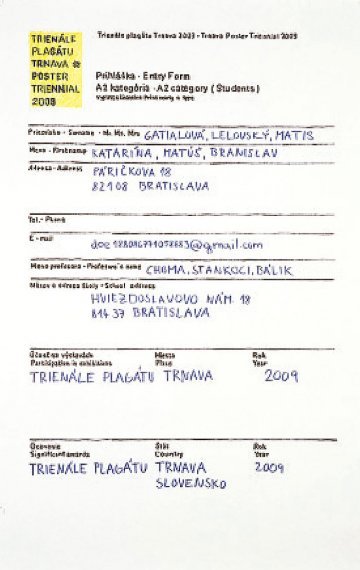 TRIENÁLE
PLAGÁTU
TRNAVA
POSTER
TRIENNIAL
2009
Trienále plagátu Trnava 2009 - Trnava Poster Triennial 2009
Prihláška - Entry Form
A2 kategória - A2 category ( Students )
Priezvisko - Surname - Mr. Ms. Mrs. GATIALOVÁ, LELOVSKÝ, MATIS
Meno - Firstname KATARÍNA, MATÚŠ, BRANISLAV
Adresa - Address PÁRIČKOVA 18
82108 BRATISLAVA
Tel. - Phone
E - mail
@gmail.com
Meno profesora - Professor's name CHOMA, STANKOCI, BÁLIK
Názov a adresa školy - School address
HVIEZDOSLAVOVO NÁM. 18
81437 BRATISLAVA
Účasť na výstavách Miesto Rok
Participation in exhibitions Place Year
TRIENÁLE PLAGÁTU TRNAVA 2009
Ocenenie Štát Rok
Significant awards Country Year
TRIENÁLE PLAGÁTU TRNAVA 2009
SLOVENSKO